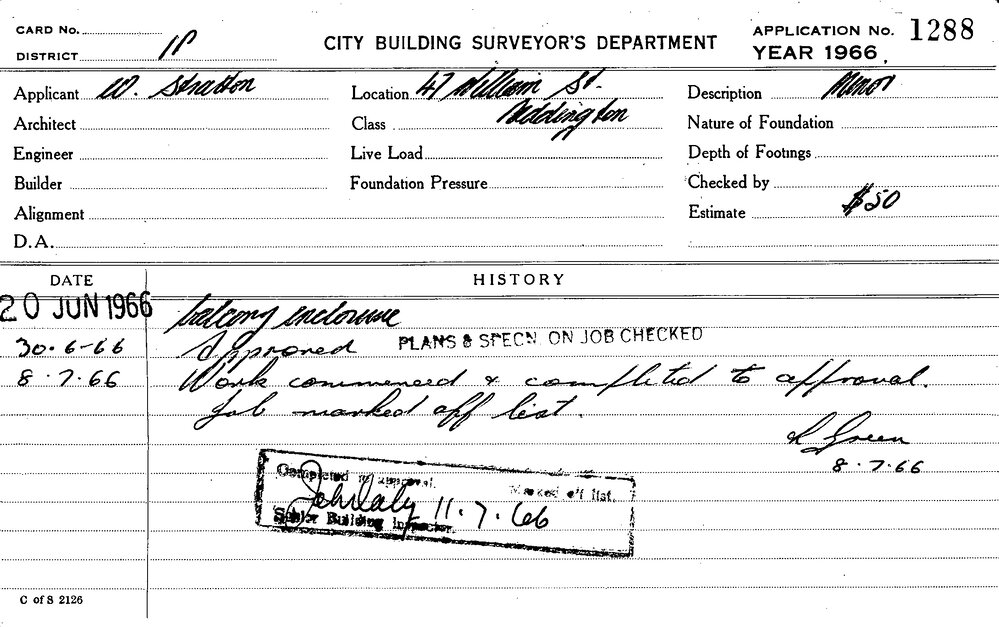 CARD No.
DISTRICT
CITY BUILDING SURVEYOR'S DEPARTMENT
APPLICATION No. 1288
YEAR 1966.
Applicant W. Stratton
Location 47 William St.
Paddington
Description Minor
Architect
Class
Nature of Foundation
Engineer
Live Load
Depth of Footings
Builder
Foundation Pressure
Checked by
Alignment
Estimate $50
D.A.
DATE HISTORY
20 JUN 1966 balcony enclosure
30.6-66 Approved PLANS & SPECN. ON JOB CHECKED
8.7.66 Work commenced & completed to approval.
Job marked off list.
Green
8.7.66
Completed to approval. Marked off list.
11.7.66
Senior Building Inspector.
C of S 2126